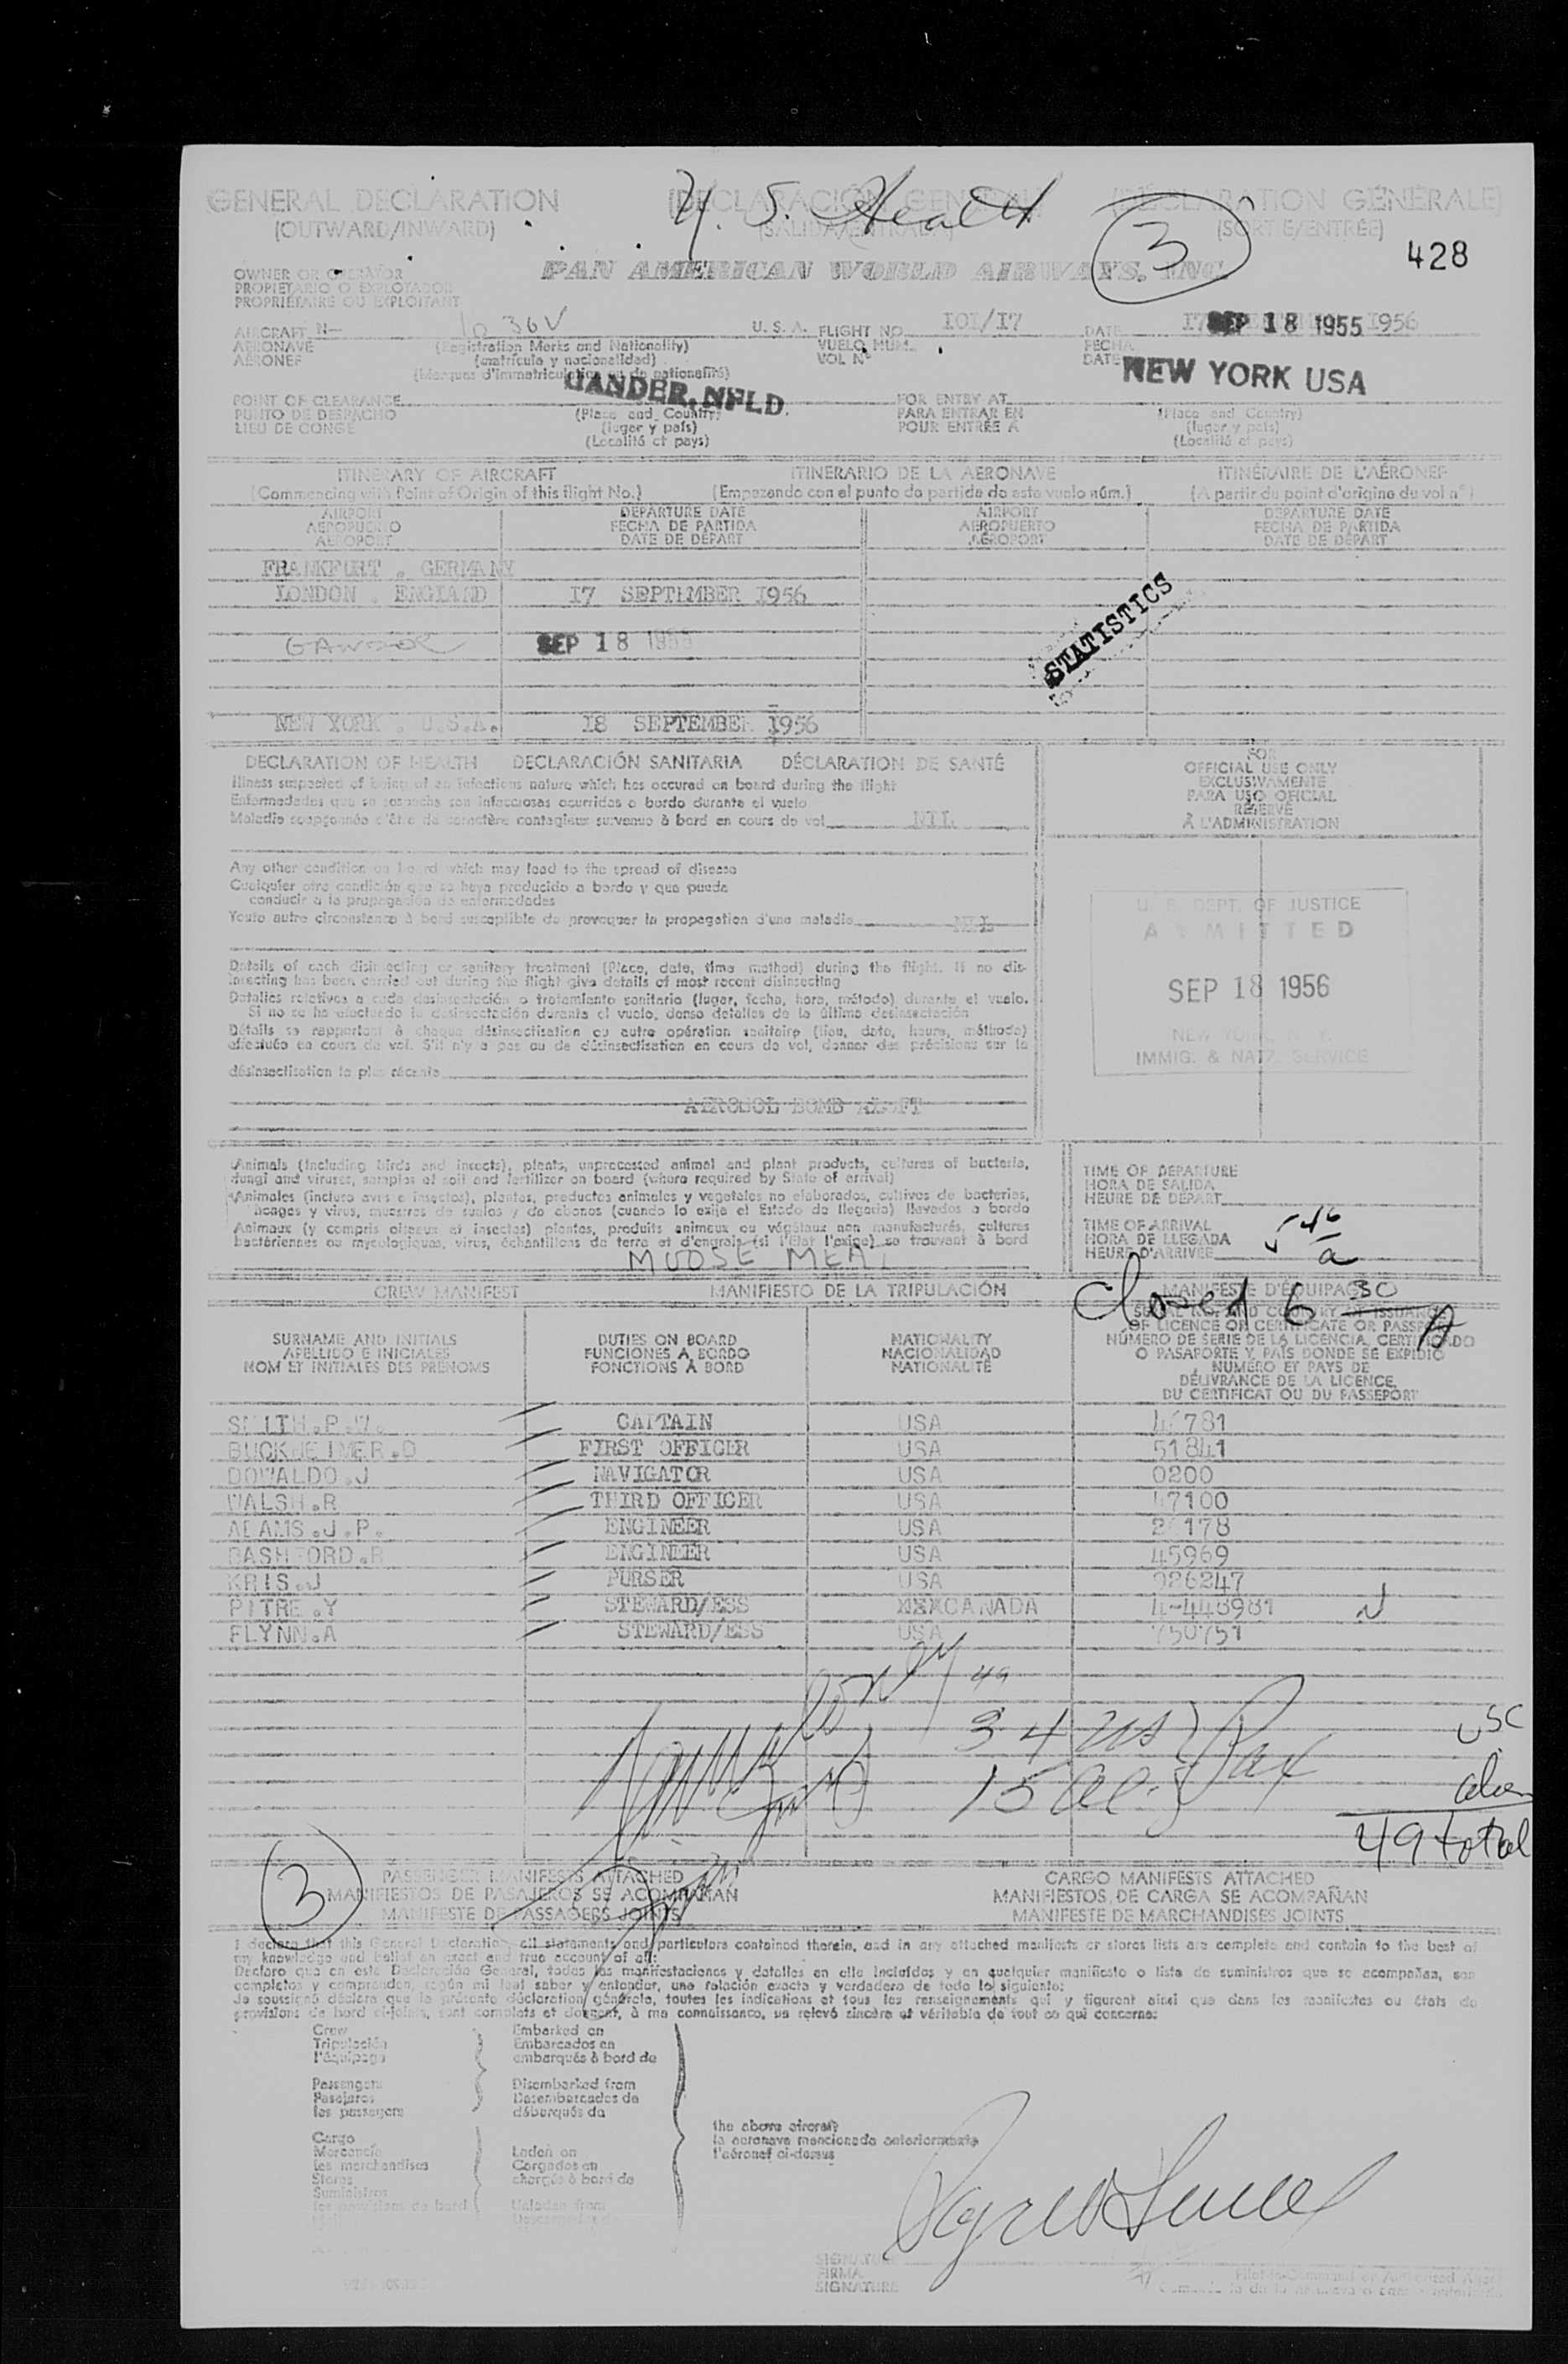 U. S. Health
GENERAL DECLARATION (DECLARACIÓN GENERAL) (DÉCLARATION GÉNÉRALE)
(OUTWARD/INWARD) (SALIDA/ENTRADA) (SORTIE/ENTRÉE)
3
428
OWNER OR OPERATOR
PROPIETARIO O EXPLOTADOR
PROPRIÉTAIRE OU EXPLOITANT
PAN AMERICAN WORLD AIRWAYS, INC.
AIRCRAFT N— 1036V U. S. A. FLIGHT NO. 101/17 DATE 17 SEP 18 1955 1956
AERONAVE (Registration Marks and Nationality) VUELO NÚM. FECHA
AÉRONEF (matrícula y nacionalidad) VOL Nº DATE
(Marques d'immatriculation et de nationalité)
GANDER, NFLD. NEW YORK USA
POINT OF CLEARANCE (Place and Country) FOR ENTRY AT (Place and Country)
PUNTO DE DESPACHO (lugar y país) PARA ENTRAR EN (lugar y país)
LIEU DE CONGÉ (Localité et pays) POUR ENTRÉE À (Localité et pays)
ITINERARY OF AIRCRAFT ITINERARIO DE LA AERONAVE ITINÉRAIRE DE L'AÉRONEF
(Commencing with Point of Origin of this flight No.) (Empezando con el punto de partida de este vuelo núm.) (A partir du point d'origine du vol nº)
AIRPORT DEPARTURE DATE AIRPORT DEPARTURE DATE
AEROPUERTO FECHA DE PARTIDA AEROPUERTO FECHA DE PARTIDA
AÉROPORT DATE DE DÉPART AÉROPORT DATE DE DÉPART
FRANKFURT . GERMANY
LONDON . ENGLAND 17 SEPTEMBER 1956
GANDER SEP 18
STATISTICS
NEW YORK . U.S.A. 18 SEPTEMBER 1956
DECLARATION OF HEALTH DECLARACIÓN SANITARIA DÉCLARATION DE SANTÉ
Illness suspected of being of an infectious nature which has occured on board during the flight
Enfermedades que se sospecha son infecciosas ocurridas a bordo durante el vuelo
Maladie soupçonnée d'être de caractère contagieux survenue à bord en cours de vol NIL
Any other condition on board which may lead to the spread of disease
Cualquier otra condición que se haya producido a bordo y que pueda
conducir a la propagación de enfermedades
Toute autre circonstance à bord susceptible de provoquer la propagation d'une maladie NIL
Details of each disinsecting or sanitary treatment (Place, date, time method) during the flight. If no dis-
insecting has been carried out during the flight give details of most recent disinsecting
Detalles relativos a cada desinsectación o tratamiento sanitario (lugar, fecha, hora, método) durante el vuelo.
Si no se ha efectuado la desinsectación durante el vuelo, dense detalles de la última desinsectación
Détails se rapportant à chaque désinsectisation ou autre opération sanitaire (lieu, date, heure, méthode)
effectuée en cours de vol. S'il n'y a pas eu de désinsectisation en cours de vol, donner des précisions sur la
désinsectisation la plus récente
AEROSOL BOMB ALOFT
FOR
OFFICIAL USE ONLY
EXCLUSIVAMENTE
PARA USO OFICIAL
RÉSERVÉ
À L'ADMINISTRATION
U. S. DEPT. OF JUSTICE
ADMITTED
SEP 18 1956
NEW YORK, N. Y.
IMMIG. & NATZ. SERVICE
Animals (including birds and insects), plants, unprocessed animal and plant products, cultures of bacteria,
fungi and viruses, samples of soil and fertilizer on board (where required by State of arrival)
Animales (incluso aves e insectos), plantas, productos animales y vegetales no elaborados, cultivos de bacterias,
hongos y virus, muestras de suelos y de abonos (cuando lo exija el Estado de llegada) llevados a bordo
Animaux (y compris oiseaux et insectes) plantes, produits animaux ou végétaux non manufacturés, cultures
bactériennes ou mycologiques, virus, échantillons de terre et d'engrais (si l'État l'exige) se trouvant à bord
MOOSE MEAT
TIME OF DEPARTURE
HORA DE SALIDA
HEURE DE DÉPART
TIME OF ARRIVAL
HORA DE LLEGADA
HEURE D'ARRIVÉE
5 46 a
Closed 6 30 A
CREW MANIFEST MANIFIESTO DE LA TRIPULACIÓN MANIFESTE D'ÉQUIPAGE
SURNAME AND INITIALS DUTIES ON BOARD NATIONALITY SERIAL NO. AND COUNTRY OF ISSUANCE
APELLIDO E INICIALES FUNCIONES A BORDO NACIONALIDAD OF LICENCE OR CERTIFICATE OR PASSPORT
NOM ET INITIALES DES PRÉNOMS FONCTIONS À BORD NATIONALITÉ NÚMERO DE SERIE DE LA LICENCIA, CERTIFICADO
O PASAPORTE Y PAÍS DONDE SE EXPIDIÓ
NUMÉRO ET PAYS DE
DÉLIVRANCE DE LA LICENCE,
DU CERTIFICAT OU DU PASSEPORT
SMITH.P.W. CAPTAIN USA 781
BUCKHEIMER.D FIRST OFFICER USA 51841
DOWALDO.J NAVIGATOR USA 0200
WALSH.R THIRD OFFICER USA 47100
ADAMS.J.P. ENGINEER USA 178
BASHFORD.R ENGINEER USA 45969
KRIS.J PURSER USA 026247
PITRE.Y STEWARD/ESS CANADA 4-446981
FLYNN.A STEWARD/ESS USA 750751
49
34 us } Pax USC
15 al. alien
49 total
3
PASSENGER MANIFESTS ATTACHED CARGO MANIFESTS ATTACHED
MANIFIESTOS DE PASAJEROS SE ACOMPAÑAN MANIFIESTOS DE CARGA SE ACOMPAÑAN
MANIFESTE DE PASSAGERS JOINTS MANIFESTE DE MARCHANDISES JOINTS
I declare that this General Declaration, all statements and particulars contained therein, and in any attached manifests or stores lists are complete and contain to the best of
my knowledge and belief an exact and true account of all:
Declaro que en esta Declaración General, todas las manifestaciones y detalles en ella incluídos y en cualquier manifiesto o lista de suministros que se acompañan, son
completos y comprenden, según mi leal saber y entender, una relación exacta y verdadera de todo lo siguiente:
Je soussigné déclare que la présente déclaration générale, toutes les indications et tous les renseignements qui y figurent ainsi que dans les manifestes ou états de
provisions de bord ci-joints, sont complets et donnent, à ma connaissance, un relevé sincère et véritable de tout ce qui concerne:
Crew Embarked on
Tripulación Embarcados en
l'équipage embarqués à bord de
Passengers Disembarked from
Pasajeros Desembarcados de
les passagers débarqués de
the above aircraft
la aeronave mencionada anteriormente
l'aéronef ci-dessus
Cargo
Mercancía Laden on
les marchandises Cargados en
Stores chargés à bord de
Suministros
les provisions de bord Unladen from
SIGNATURE
FIRMA
SIGNATURE
Pilot-in-Command or Authorized Agent